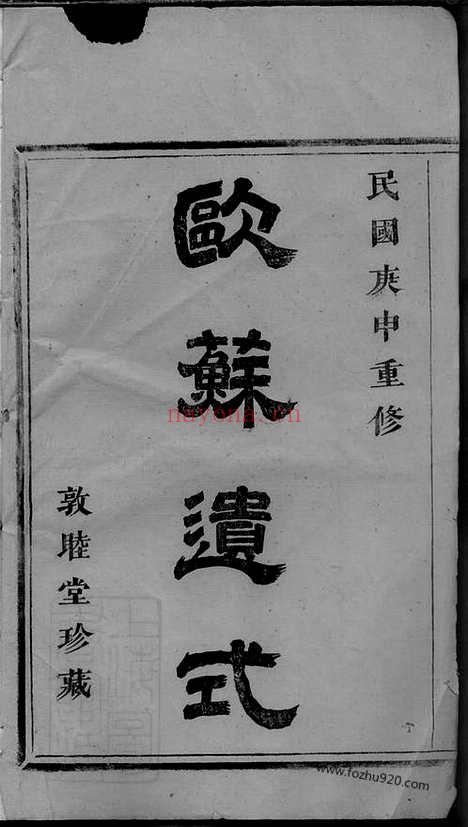 民國庚申重修
歐蘇遺式
敦睦堂珍藏
nayona.cn
www.fozhu920.com